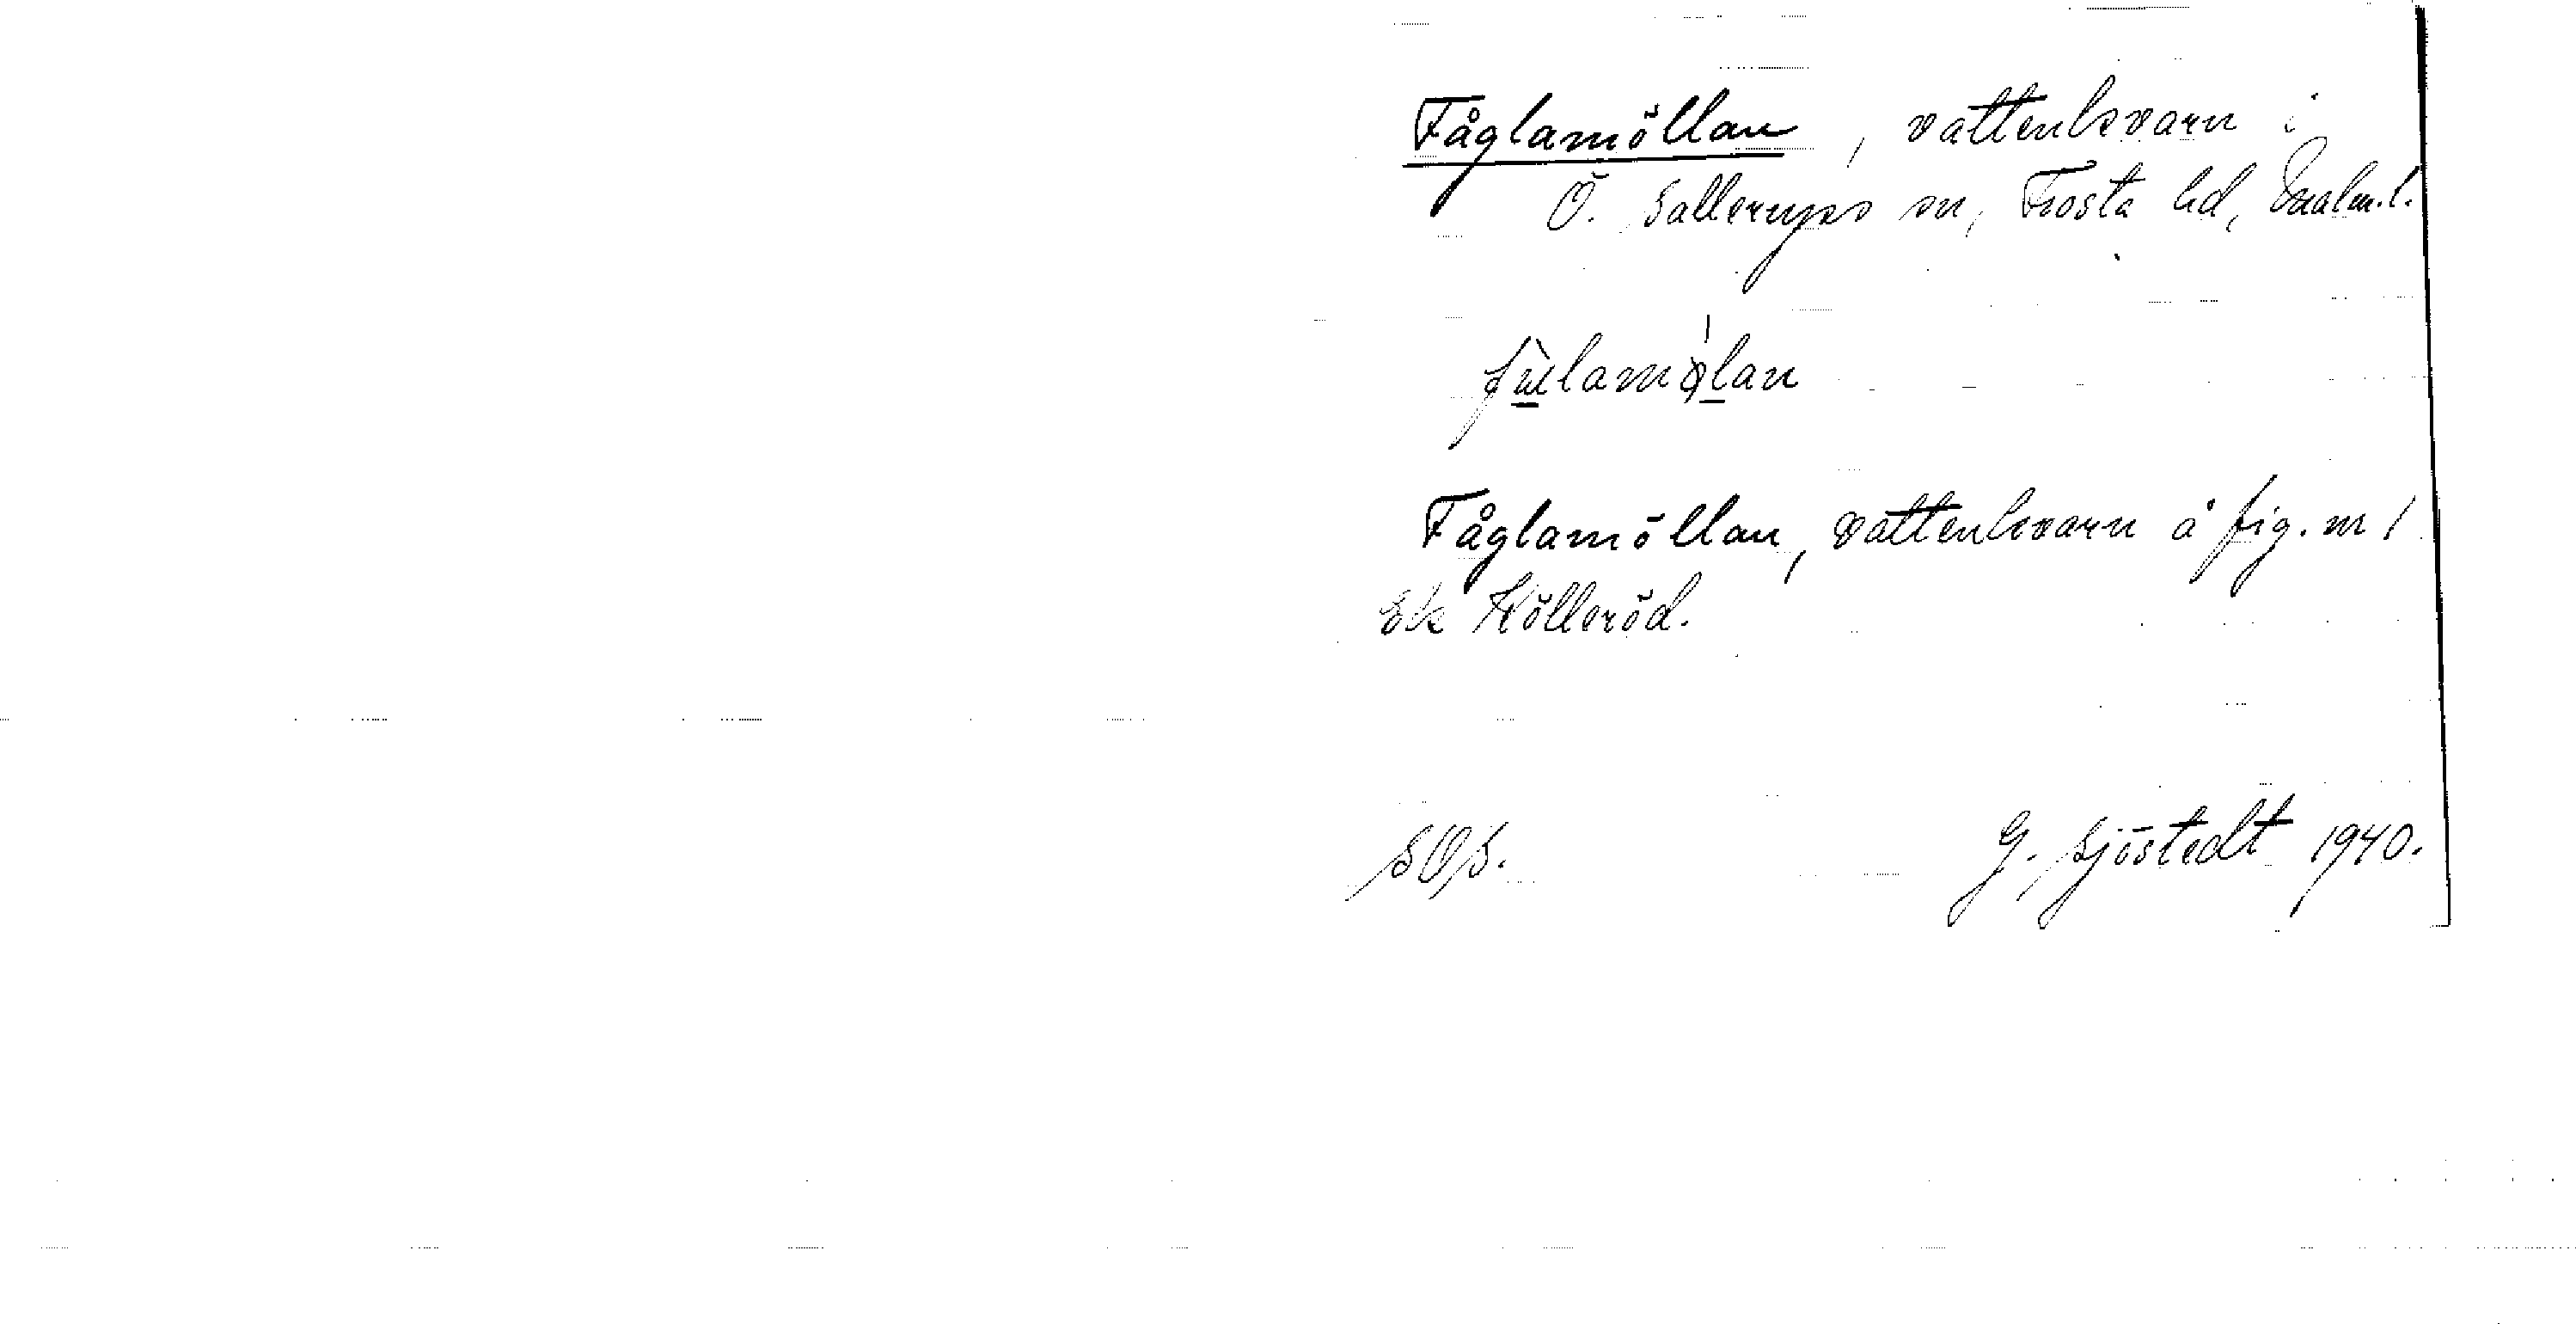 Fåglamöllan, vattenkvarn i
Ö. Sallerups sn, Frosta hd, Malm.l.
Fåglamöllan, vattenkvarn å fig. nr 1
Ek Kölleröd.
SOS. G. Sjöstedt 1940.